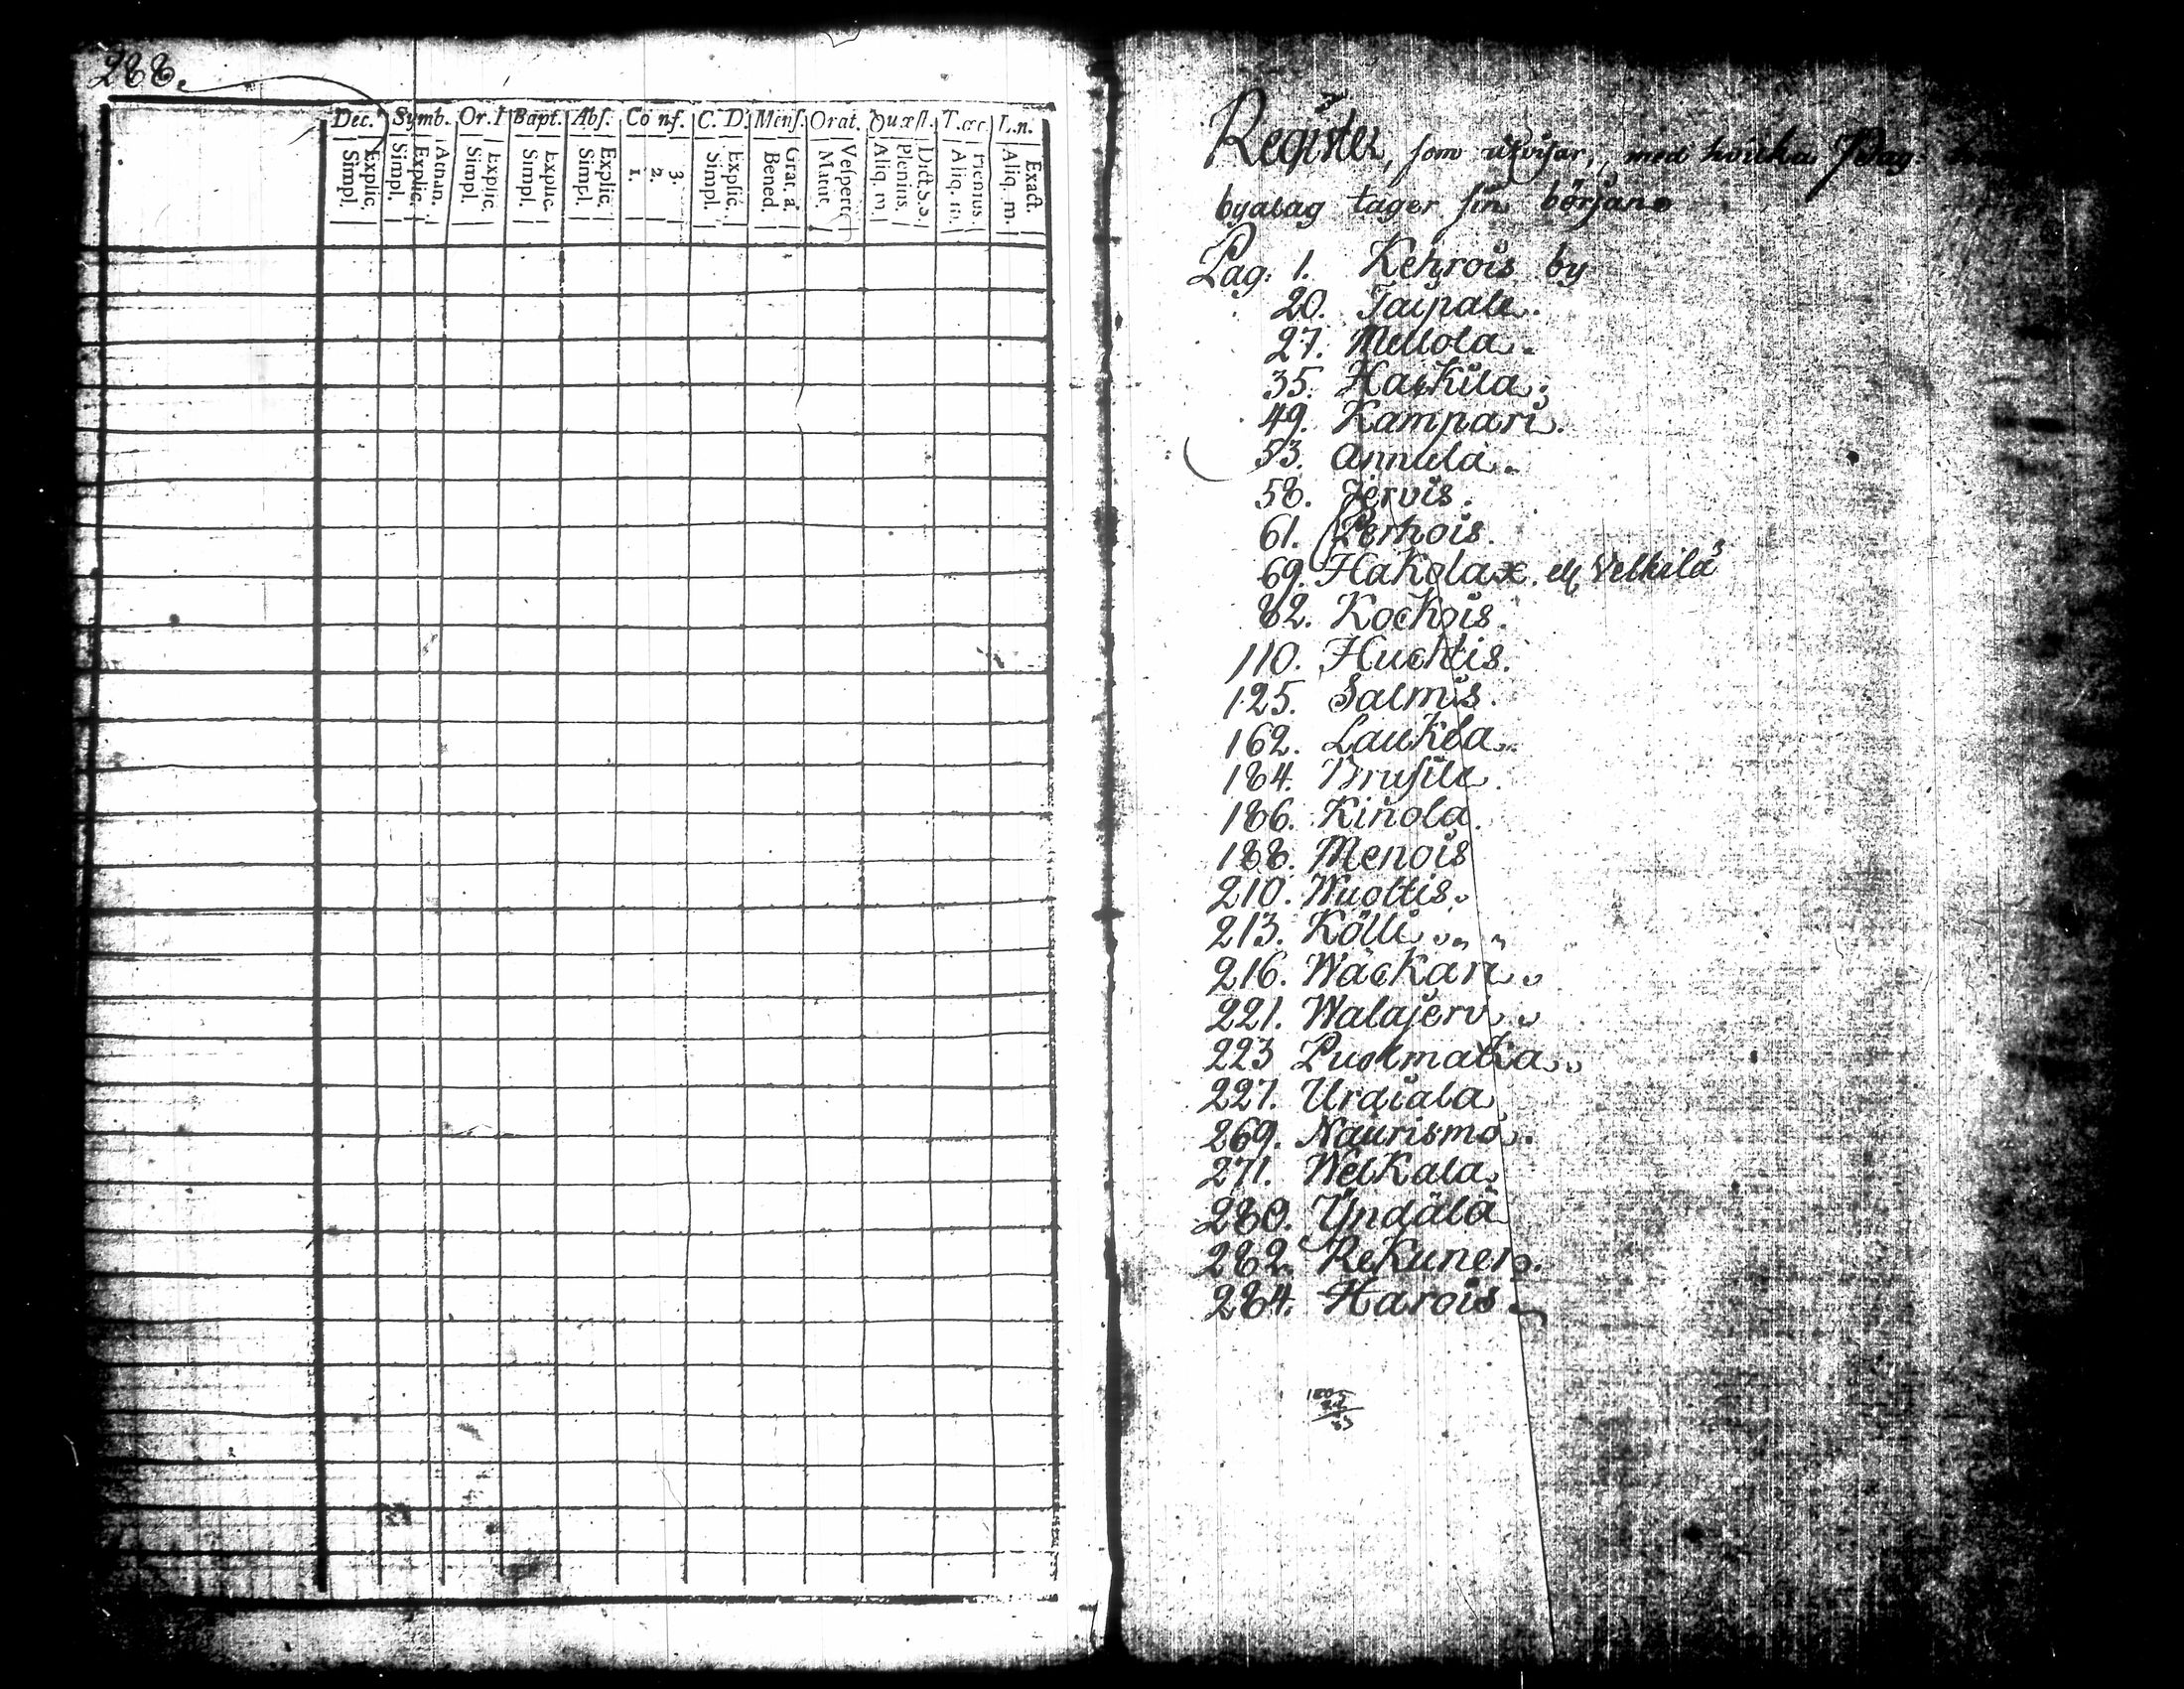 288.
Dec. Symb. Or. Bapt. Abs. Conf. C. D. Mens. Orat. Quæst. T. œc. L. n.
Explic. Simpl. Athan. Explic. Simpl. Explic. Simpl. Explic. Simpl. Explic. Simpl. 3. 2. 1. Explic. Simpl. Grat. a. Bened. Vespert. Matut. Dict. S. S. Plenius. Aliq. m. Plenius. Aliq. m. Exact. Aliq. m.
Register, som utvisar, med hvilka Pag:
byalag tager sin början
Pag: 1. Kehrois by
20. Taipale.
27. Mellola.
35. Hackila.
49. Kampari.
53. Annula.
58. Jervis.
61. Perhois.
69. Hakolax. ell Velkilä
82. Kockois.
110. Huchtis.
125. Salmis.
162. Laukela.
184. Brusila.
186. Kinola.
188. Menois
210. Wuoltis.
213. Kölli
216. Wäckari.
221. Walajervi
223 Puolmatka
227. Urdiala
269. Naurismo.
271. Welkala
280. Yndälä
282. Rekunen.
284. Harois.